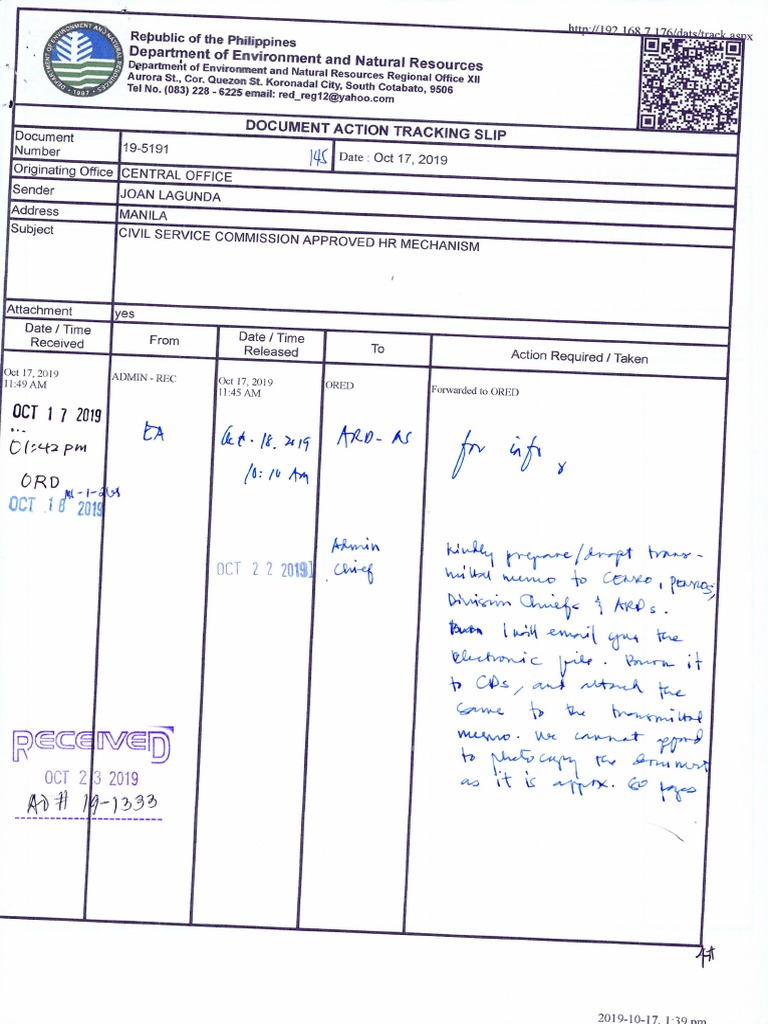 http://192.168.7.176/dats/track.aspx
Republic of the Philippines
Department of Environment and Natural Resources
Department of Environment and Natural Resources Regional Office XII
Aurora St., Cor. Quezon St. Koronadal City, South Cotabato, 9506
Tel No. (083) 228 - 6225 email: red_reg12@yahoo.com
DEPARTMENT OF ENVIRONMENT AND NATURAL RESOURCES
1987
DOCUMENT ACTION TRACKING SLIP
Document Number 19-5191 145 Date : Oct 17, 2019
Originating Office CENTRAL OFFICE
Sender JOAN LAGUNDA
Address MANILA
Subject CIVIL SERVICE COMMISSION APPROVED HR MECHANISM
Attachment yes
Date / Time Received From Date / Time Released To Action Required / Taken
Oct 17, 2019 ADMIN - REC Oct 17, 2019 ORED Forwarded to ORED
11:49 AM 11:45 AM
OCT 17 2019
01:42 pm EA Oct. 18. 2019 ARD-AS for info
10:10 AM
ORD
OCT 18 2019
OCT 22 2019 Admin Chief
Kindly prepare/drapt trans-
mittal memo to CENRO, PENROS,
Division Chiefs & ARDs.
I will email you the
electronic file. Burn it
to CDs, and attach the
same to the transmittal
memo. We cannot afford
to photocopy the document
as it is approx. 60 pages
RECEIVED
OCT 23 2019
AD# 19-1333
2019-10-17, 1:39 pm